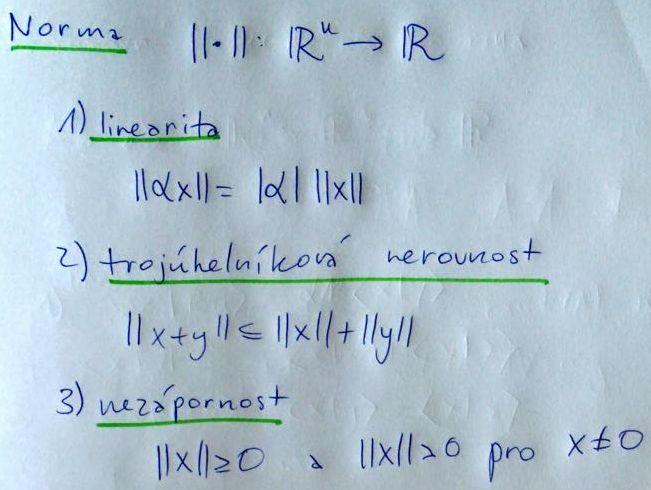 Norma ||·||: ℝⁿ → ℝ
1) linearita
||αx|| = |α| ||x||
2) trojúhelníková nerovnost
||x+y|| ≤ ||x|| + ||y||
3) nezápornost
||x|| ≥ 0 a ||x|| > 0 pro x ≠ 0